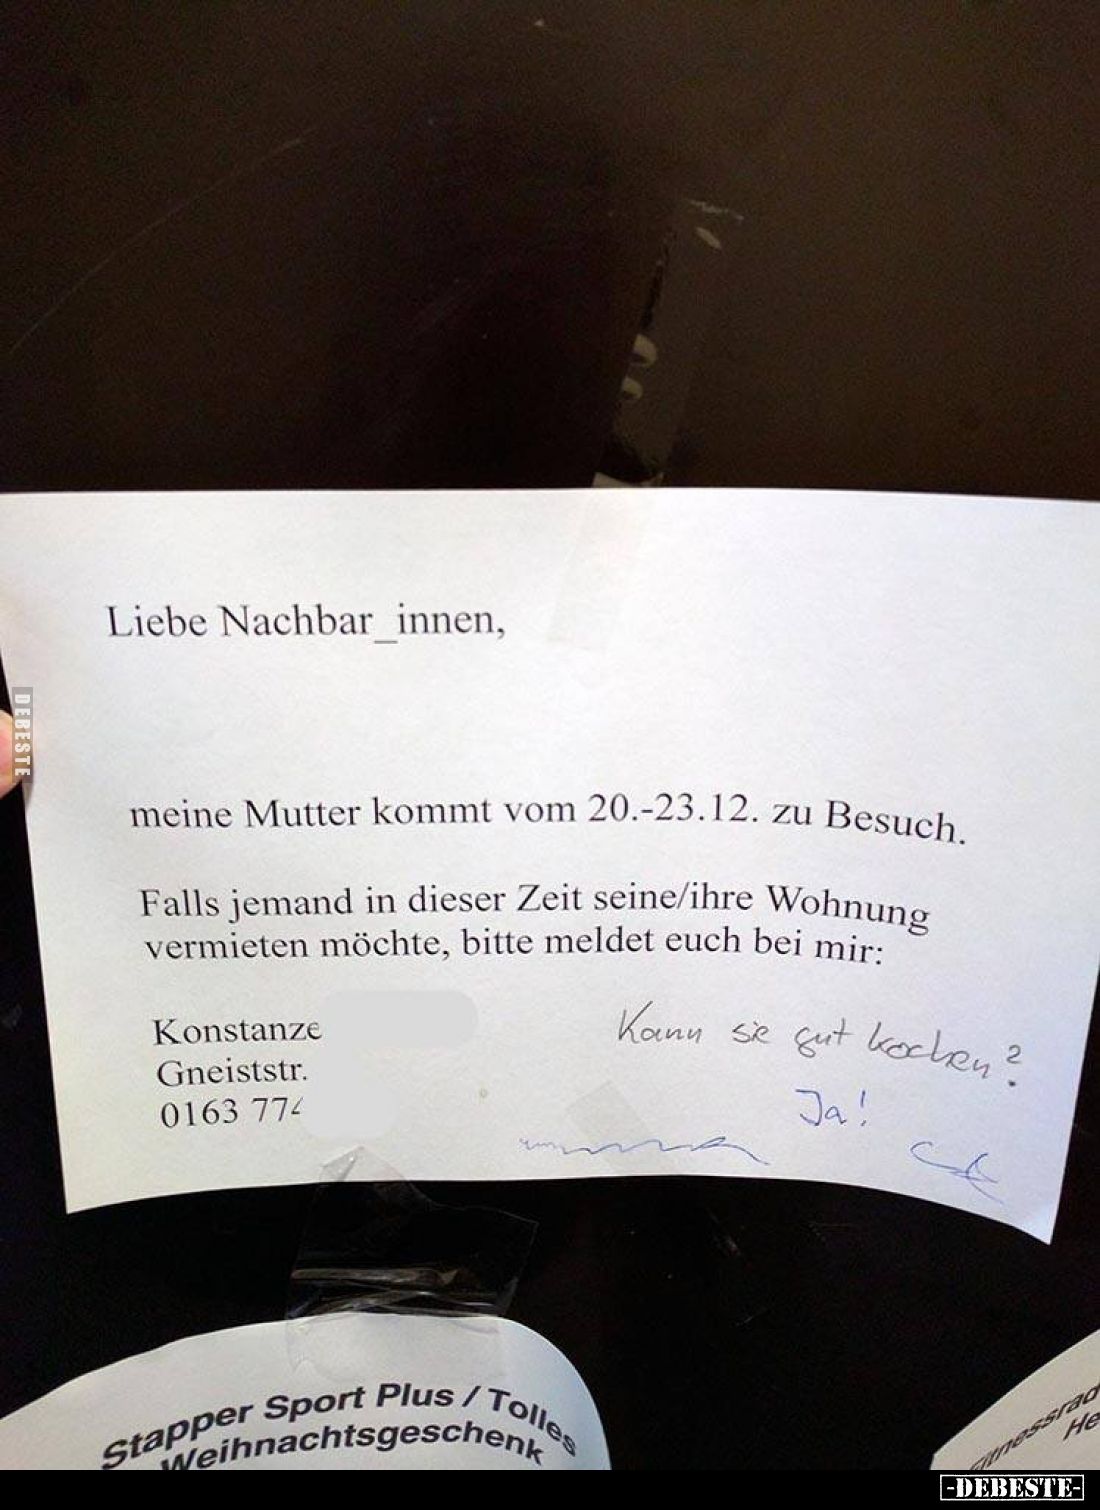 Liebe Nachbar_innen,
meine Mutter kommt vom 20.-23.12. zu Besuch.
Falls jemand in dieser Zeit seine/ihre Wohnung
vermieten möchte, bitte meldet euch bei mir:
Konstanze
Gneiststr.
0163 774
Kann sie gut kochen?
Ja!
DEBESTE
Stapper Sport Plus / Tolles
Weihnachtsgeschenk
He
-DEBESTE-